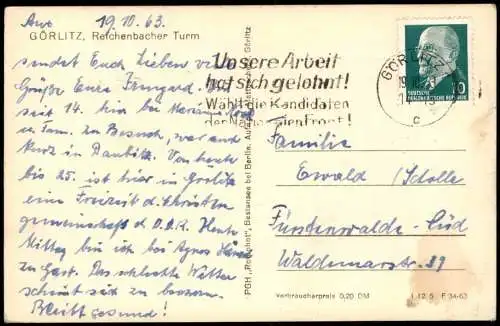 19.10.63.
GÖRLITZ, Reichenbacher Turm
sendet Euch Lieben viele
Grüße Eure Irmgard. Bin
seit 14. hier bei
u. Fam. zu Besuch, war auch
kurz in Daubitz. Von heute
bis 25. ist hier in Görlitz
eine Freizeit d. Christen
gemeinschaft d. D.D.R. Heute
Mittag bin ich bei Agnes
zu Gast. Das schlechte Wetter
scheint sich zu bessern.
Bleibt gesund!
PGH „Rotophot", Bestensee bei Berlin.
Unsere Arbeit
hat sich gelohnt!
Wählt die Kandidaten
der Nationalen Front!
GÖRLITZ
c
10
DEUTSCHE
DEMOKRATISCHE REPUBLIK
Familie
Ewald Scholle
Fürstenwalde-Süd
Waldemarstr. 39
Verbraucherpreis 0,20 DM